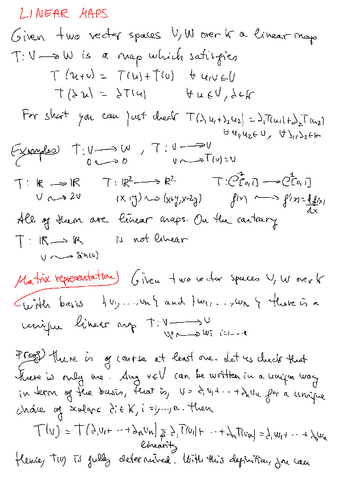 LINEAR MAPS
Given two vector spaces U, W over K a linear map
T: V → W is a map which satisfies
T(u+v) = T(u)+T(v) ∀ u,v ∈ V
T(λu) = λT(u) ∀ u ∈ V, λ ∈ K
For short you can just check T(λ₁u₁+λ₂u₂) = λ₁T(u₁)+λ₂T(u₂)
∀ u₁,u₂ ∈ V, ∀ λ₁,λ₂ ∈ K
Examples) T: V → W , T: V → V
0 → 0 v → T(v)=v
T: ℝ → ℝ T: ℝ² → ℝ² T: C[0,1] → C[0,1]
v → 2v (x,y) → (x+y, x-2y) f(x) → f'(x) = df(x)/dx
All of them are linear maps. On the contrary
T: ℝ → ℝ is not linear
v → sin(v)
Matrix representation) Given two vector spaces U, W over K
with basis {v₁, ..., vn} and {w₁, ..., wn} there is a
unique linear map T: V → U
vi → wi i=1...n
Proof) There is of course at least one. Let us check that
there is only one. Any v∈V can be written in a unique way
in term of the basis, that is, v = λ₁v₁ + ... + λnvn for a unique
choice of scalars λi ∈ K, i=1,...,n. Then
T(v) = T(λ₁v₁ + ... + λnvn) = λ₁T(v₁) + ... + λnT(vn) = λ₁w₁ + ... + λnwn
linearity
Hence, T(v) is fully determined. With this definition, you can